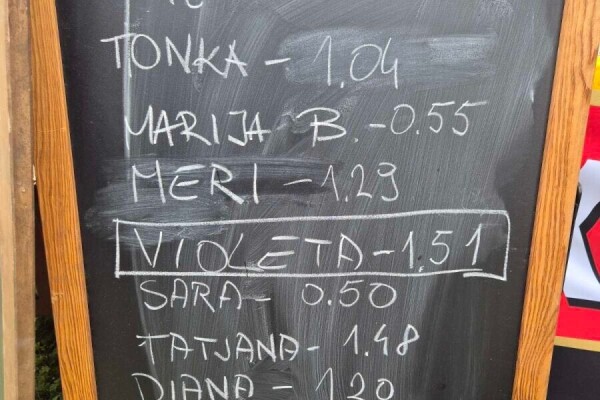 TONKA - 1.04
MARIJA B. - 0.55
MERI - 1.29
VIOLETA - 1.51
SARA - 0.50
TATJANA - 1.48
DIANA - 1.20